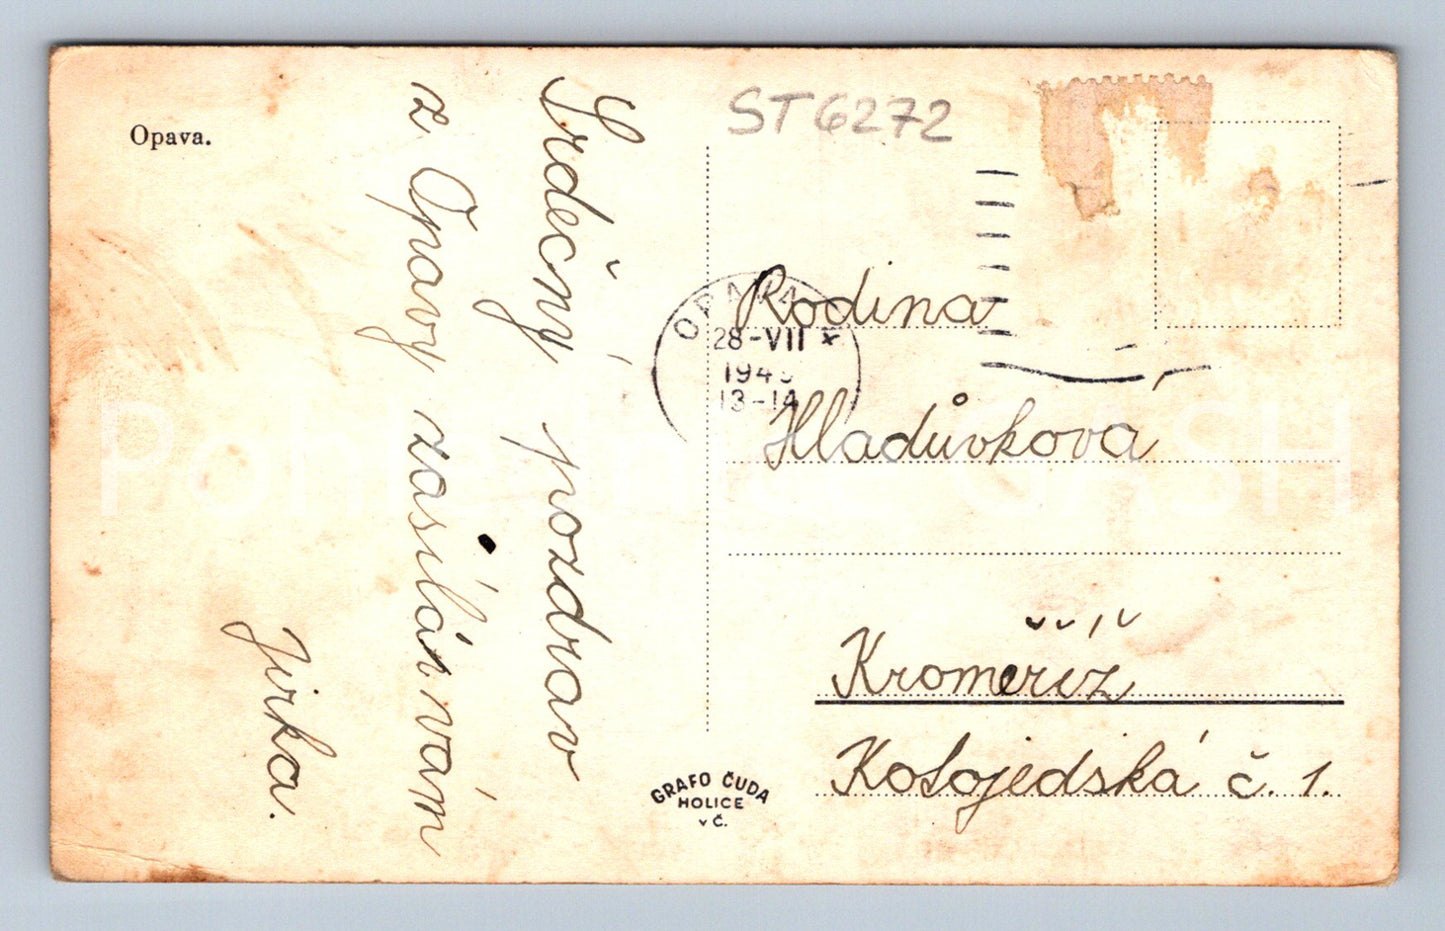 Opava.
Srdečný pozdrav
z Opavy zasílá vám
Jirka.
ST6272
OPAVA
28-VII
13-14
Rodina
Hladůvkova
Kroměříž
Kotojedská č. 1.
GRAFO ČUDA
HOLICE
v Č.